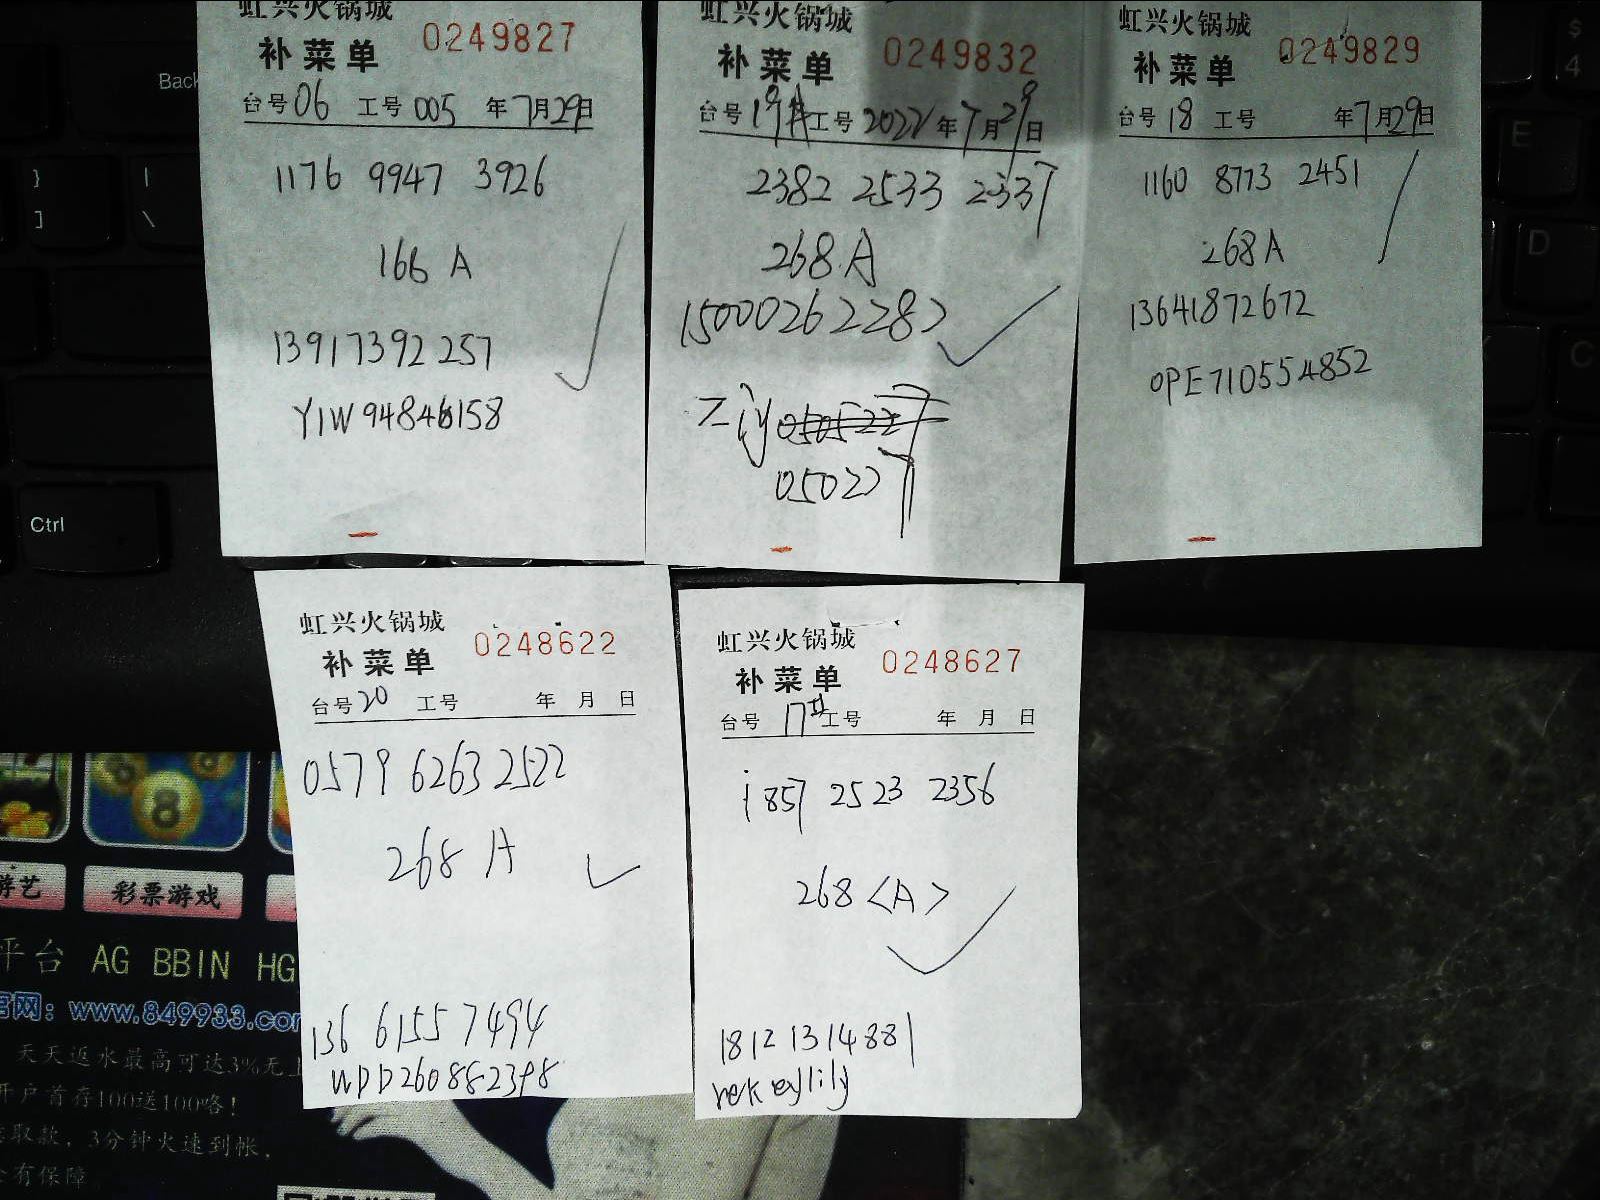 虹兴火锅城
补菜单 0249827
台号06 工号005 年7月29日
1176 9947 3926
166 A
13917392257
YIW94846158
虹兴火锅城
补菜单 0249832
台号19# 工号 2022年7月29日
2382 2533 2337
268 A
15000262282
050227
虹兴火锅城
补菜单 0249829
台号18 工号 年7月29日
1160 8773 2451
268 A
13641872672
OPE710554852
虹兴火锅城
补菜单 0248622
台号20 工号 年 月 日
0579 6263 2522
268 A
136 6155 7494
WDD260882398
虹兴火锅城
补菜单 0248627
台号 17# 工号 年 月 日
1857 2523 2356
268 <A>
18121314881
Back
}
]
|
\
Ctrl
$
4
E
D
C
游艺
彩票游戏
平台 AG BBIN HG
官网：www.849933.com
天天返水最高可达3%无上
开户首存100送100咯！
取款，3分钟火速到帐，
有保障